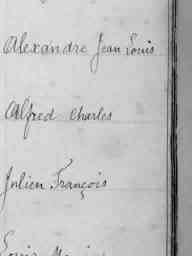 Alexandre Jean Louis
Alfred Charles
Julien François
Louis